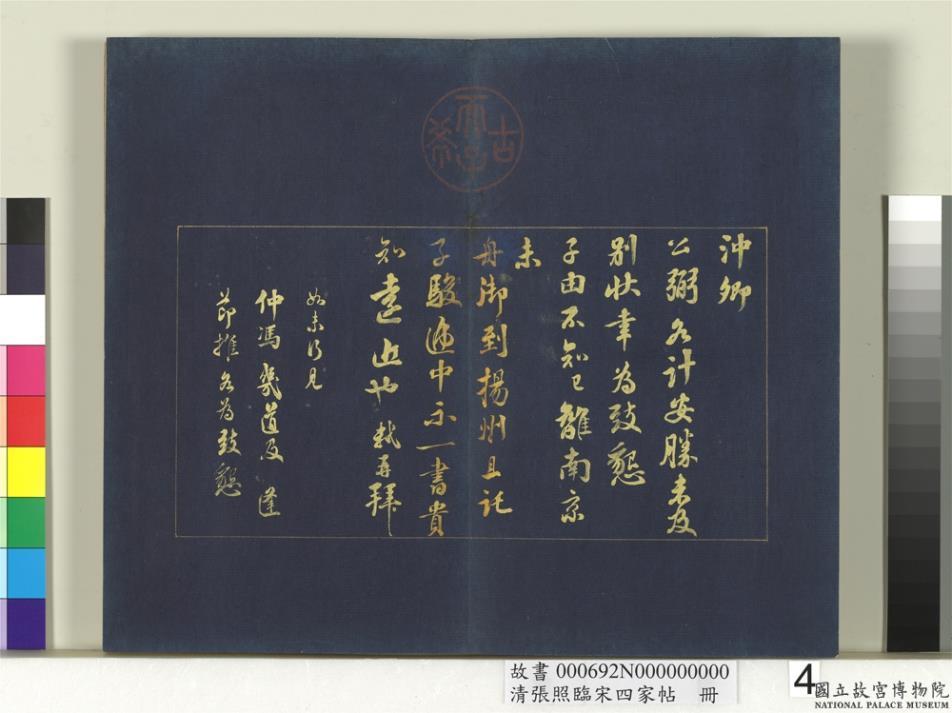 沖卿
公弼各計安勝未及
別狀幸為致懇
子由不知已離南京
未
舟御到揚州且託
子駿遞中示一書貴
知遠近也軾再拜
如未行見
仲馮幾道及 蓬
節推各為致懇
故書 000692N000000000
清張照臨宋四家帖 冊
4
國立故宮博物院
NATIONAL PALACE MUSEUM